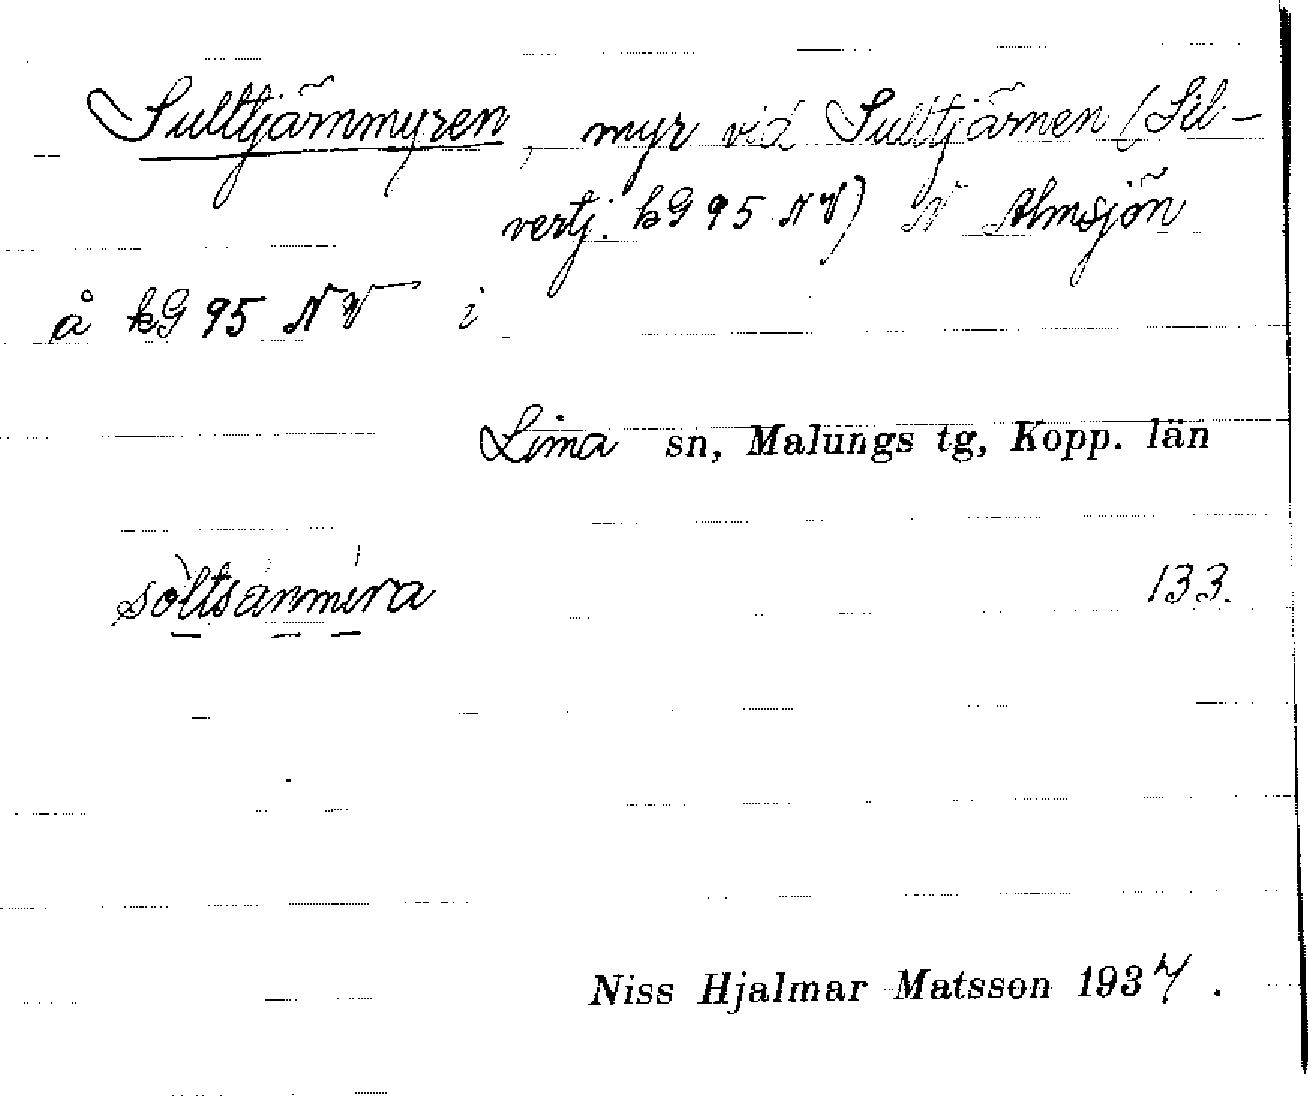 Sulttjärnmyren, myr vid Sulttjärnen (Sil-
vertj. kG 95 NV) N Almsjön
å kG 95 NV i
Lima sn, Malungs tg, Kopp. län
sòltsánmíra 133.
Niss Hjalmar Matsson 1937.